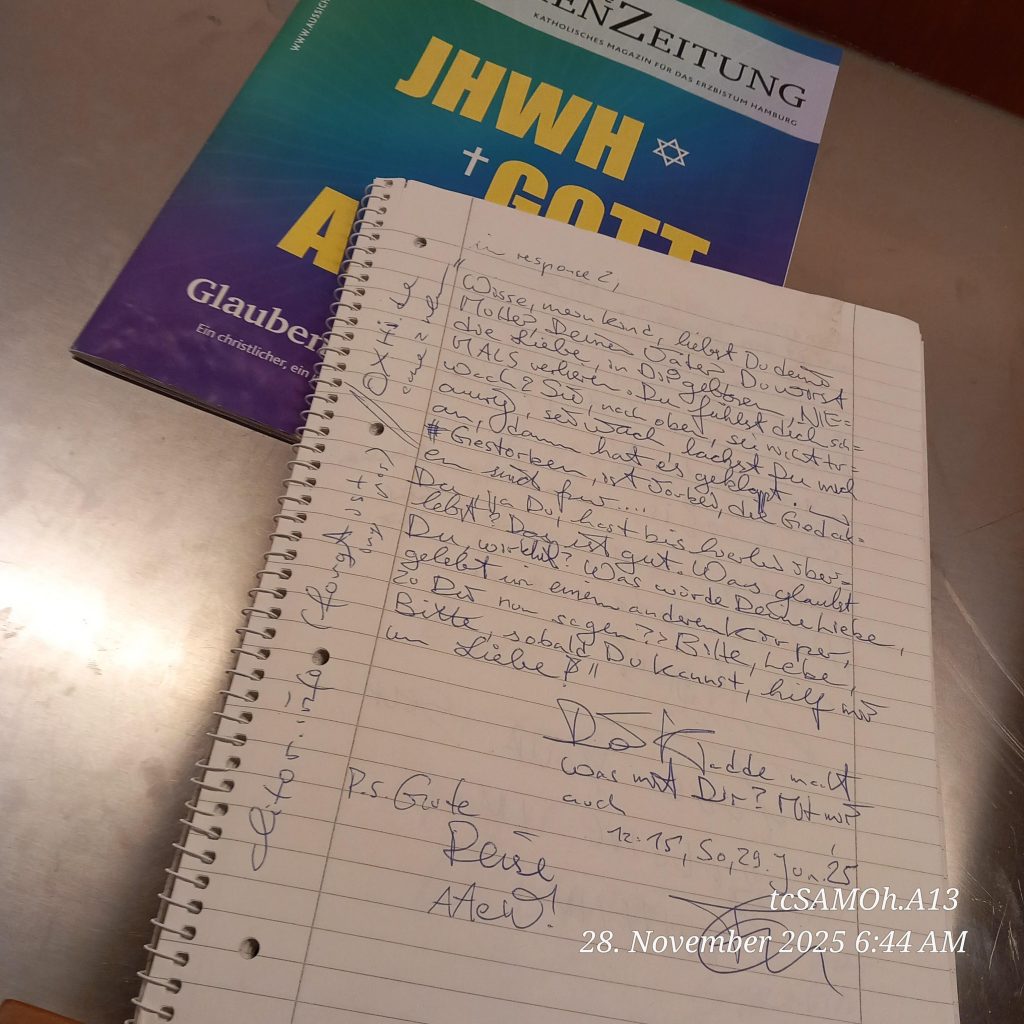 WWW.AUSSICH
ENZEITUNG
KATHOLISCHES MAGAZIN FÜR DAS ERZBISTUM HAMBURG
JHWH
GOTT
A
Glauben
Ein christlicher, ein
in response 2,
"Wisse, mein Kind, liebst Du deine
Mutter Deinen Vater, Du wirst
die Liebe, in Dir geboren, NIE=
MALS verlieren. Du fühlst dich sch=
wach? Sieh nach oben, sei nicht tr=
aurig, sei wach, lachst Du mich
an, dann hat es geklappt.
Gestorben, ist vorbei, die Gedank=
en sind frei ....
Du, ja Du, hast bis hierher über=
lebt? Das ist gut. Was glaubst
Du, wirklich? Was würde Deine Liebe,
gelebt in einem anderen Körper,
zu Dir nun sagen?? Bitte, Lebe,
Bitte, sobald Du kannst, hilf mir
in Liebe!"
Die Kladde macht
was mit Dir? Mit mir
auch
P.S. Gute
Reise
12:15, So, 29. Jun. 25
tcSAMOh.A13
28. November 2025 6:44 AM